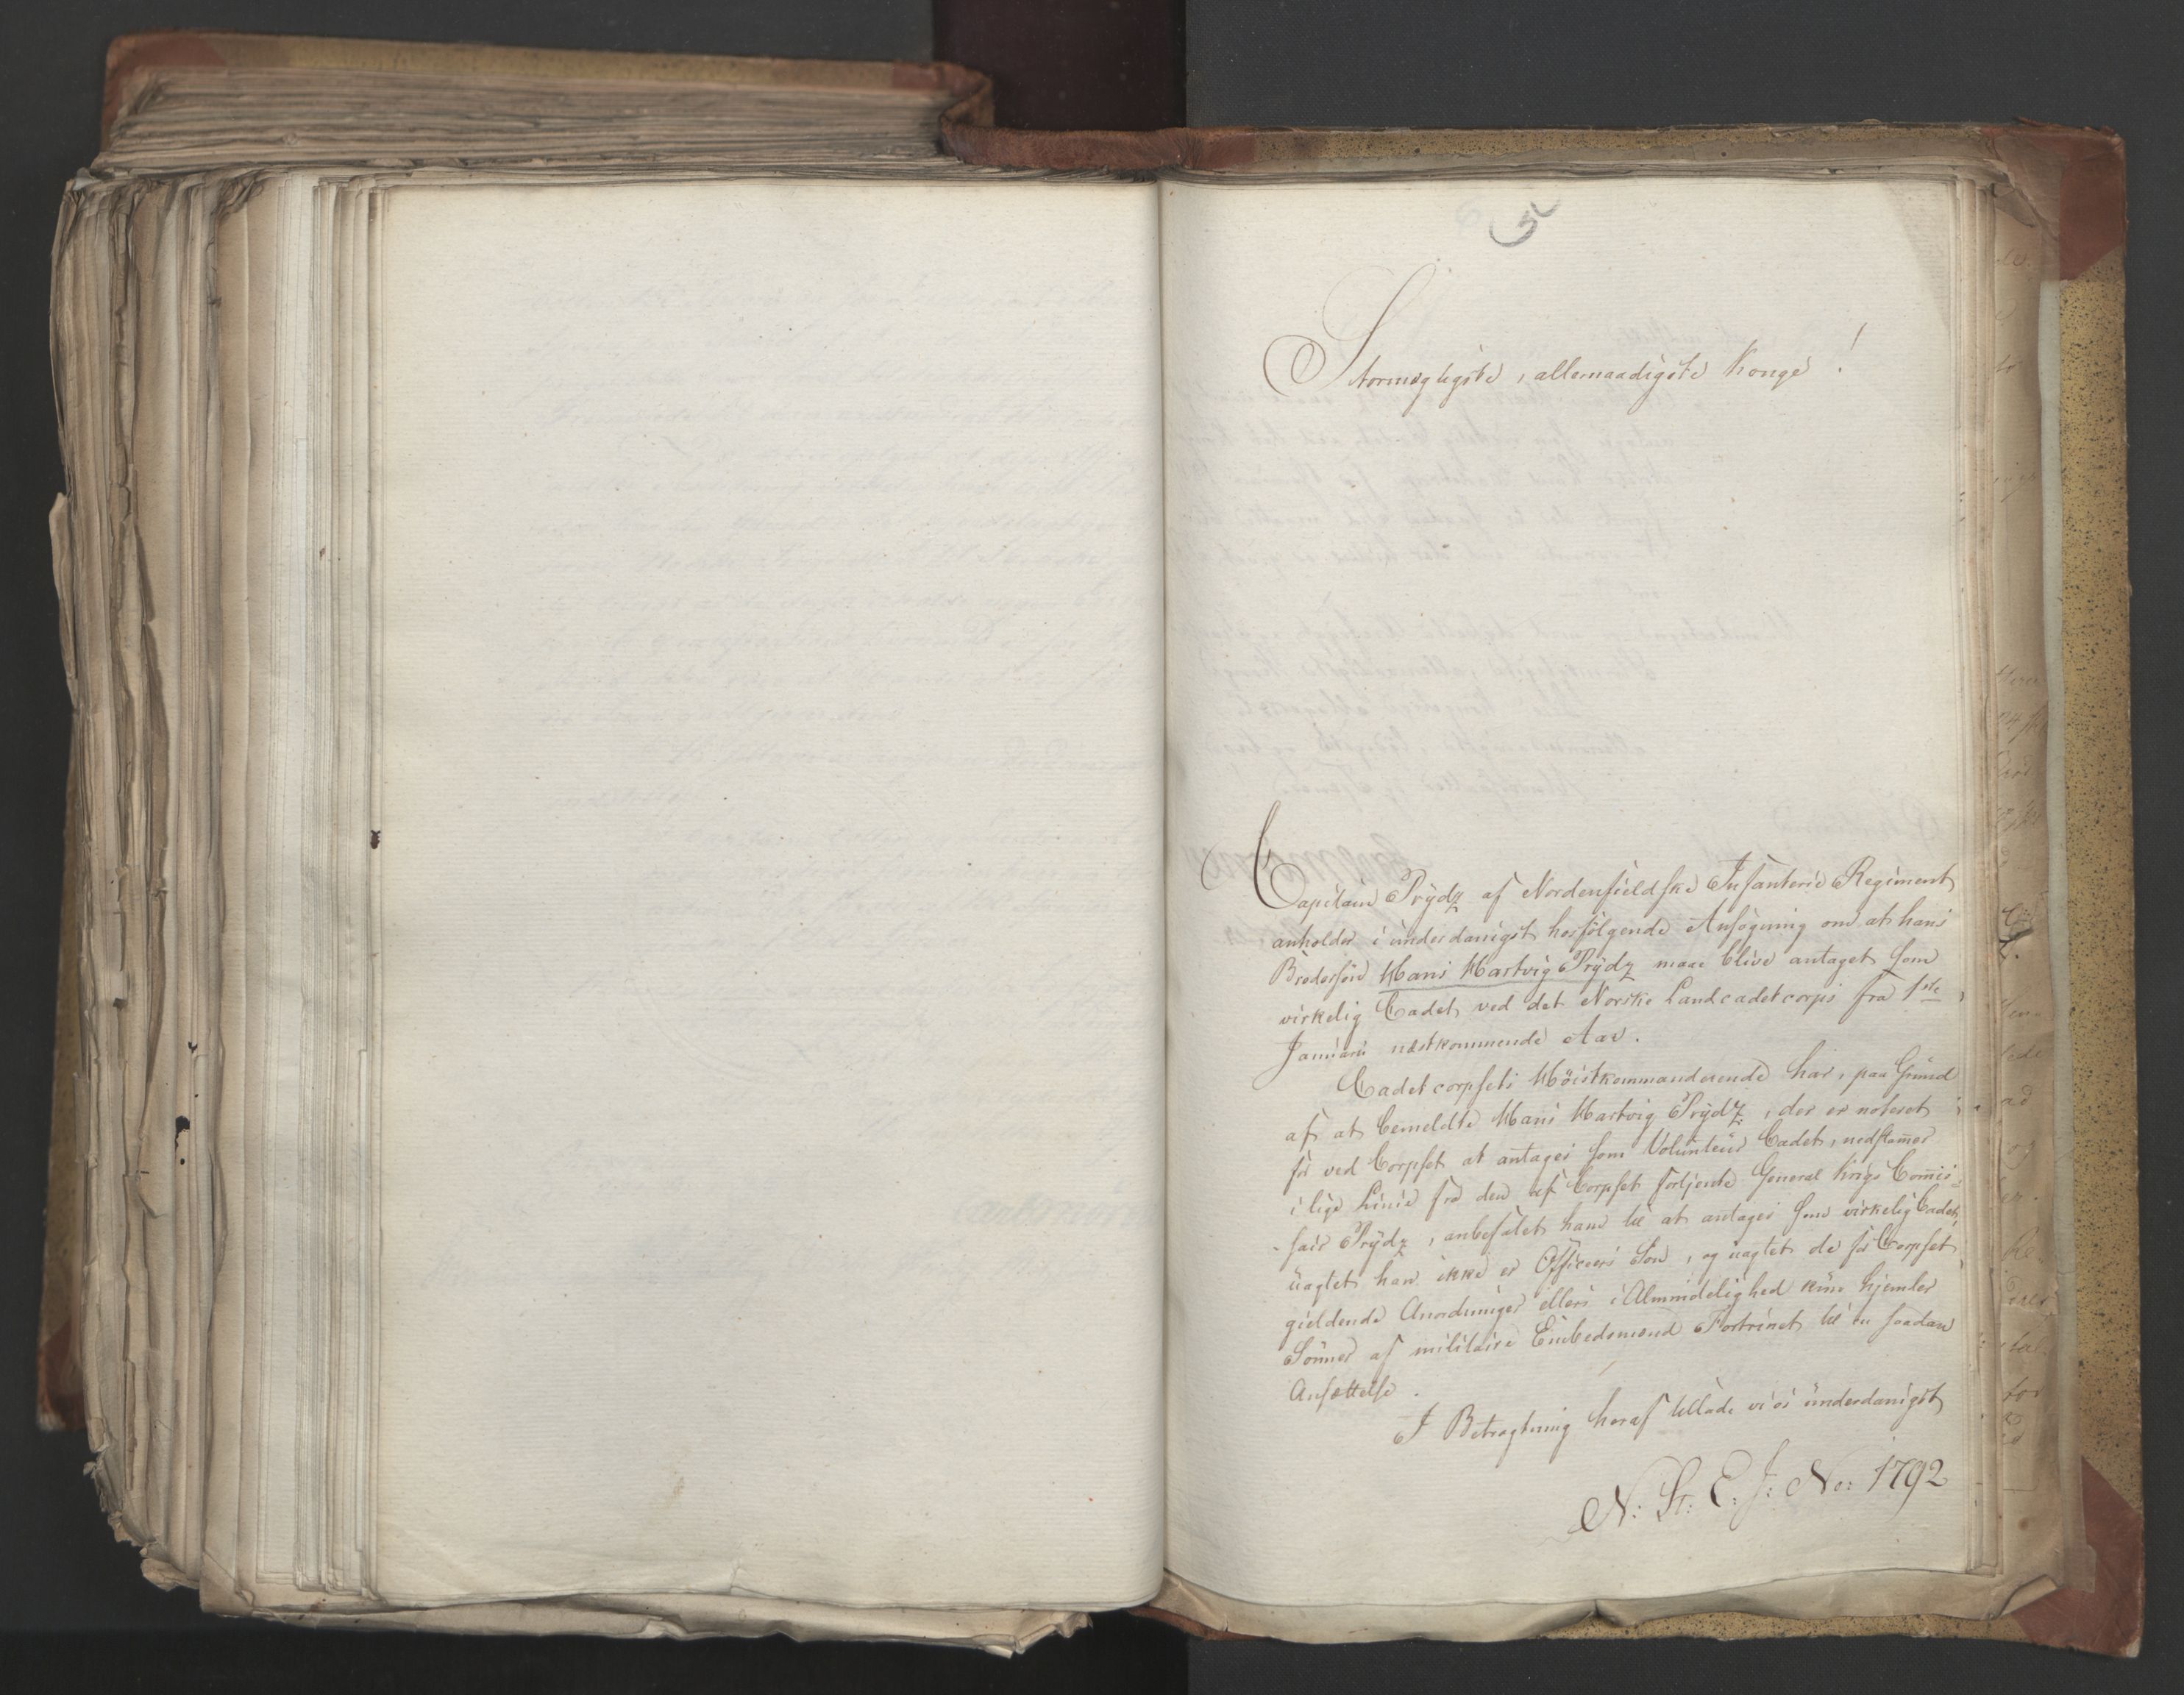 Stormægtigste, allernaadigste Konge!
Capitain Prÿdz af Nordenfieldske Infanterie Regiment
anholder i underdanigst hosfölgende Ansögning om at hans
Brodersön Hans Hartvig Prÿdz maae blive antaget som
virkelig Cadet ved det Norske Landcadetcorps fra 1ste
Januari næstkommende Aar.
Cadetcorpsets Höistkommanderende har, paa Grund
af at bemeldte Hans Hartvig Prÿdz, der er noteret
for ved Corpset at antages som Volunteur Cadet, nedstam̅er
i lige Linie fra den af Corpset fortjente General Krigs Com̅is-
sair Prÿdz, anbefalet ham til at antages som virkelig Cadet,
uagtet han ikke er Officeers Sön, og uagtet de for Corpset
gieldende Anordninger ellers i Almindelighed kun hjemler
Sönner af militaire Embedsmænd Fortrinet til en saadan
Ansættelse.
I Betragtning heraf tillade vi os underdanigst
N: St: E: J: No: 1792